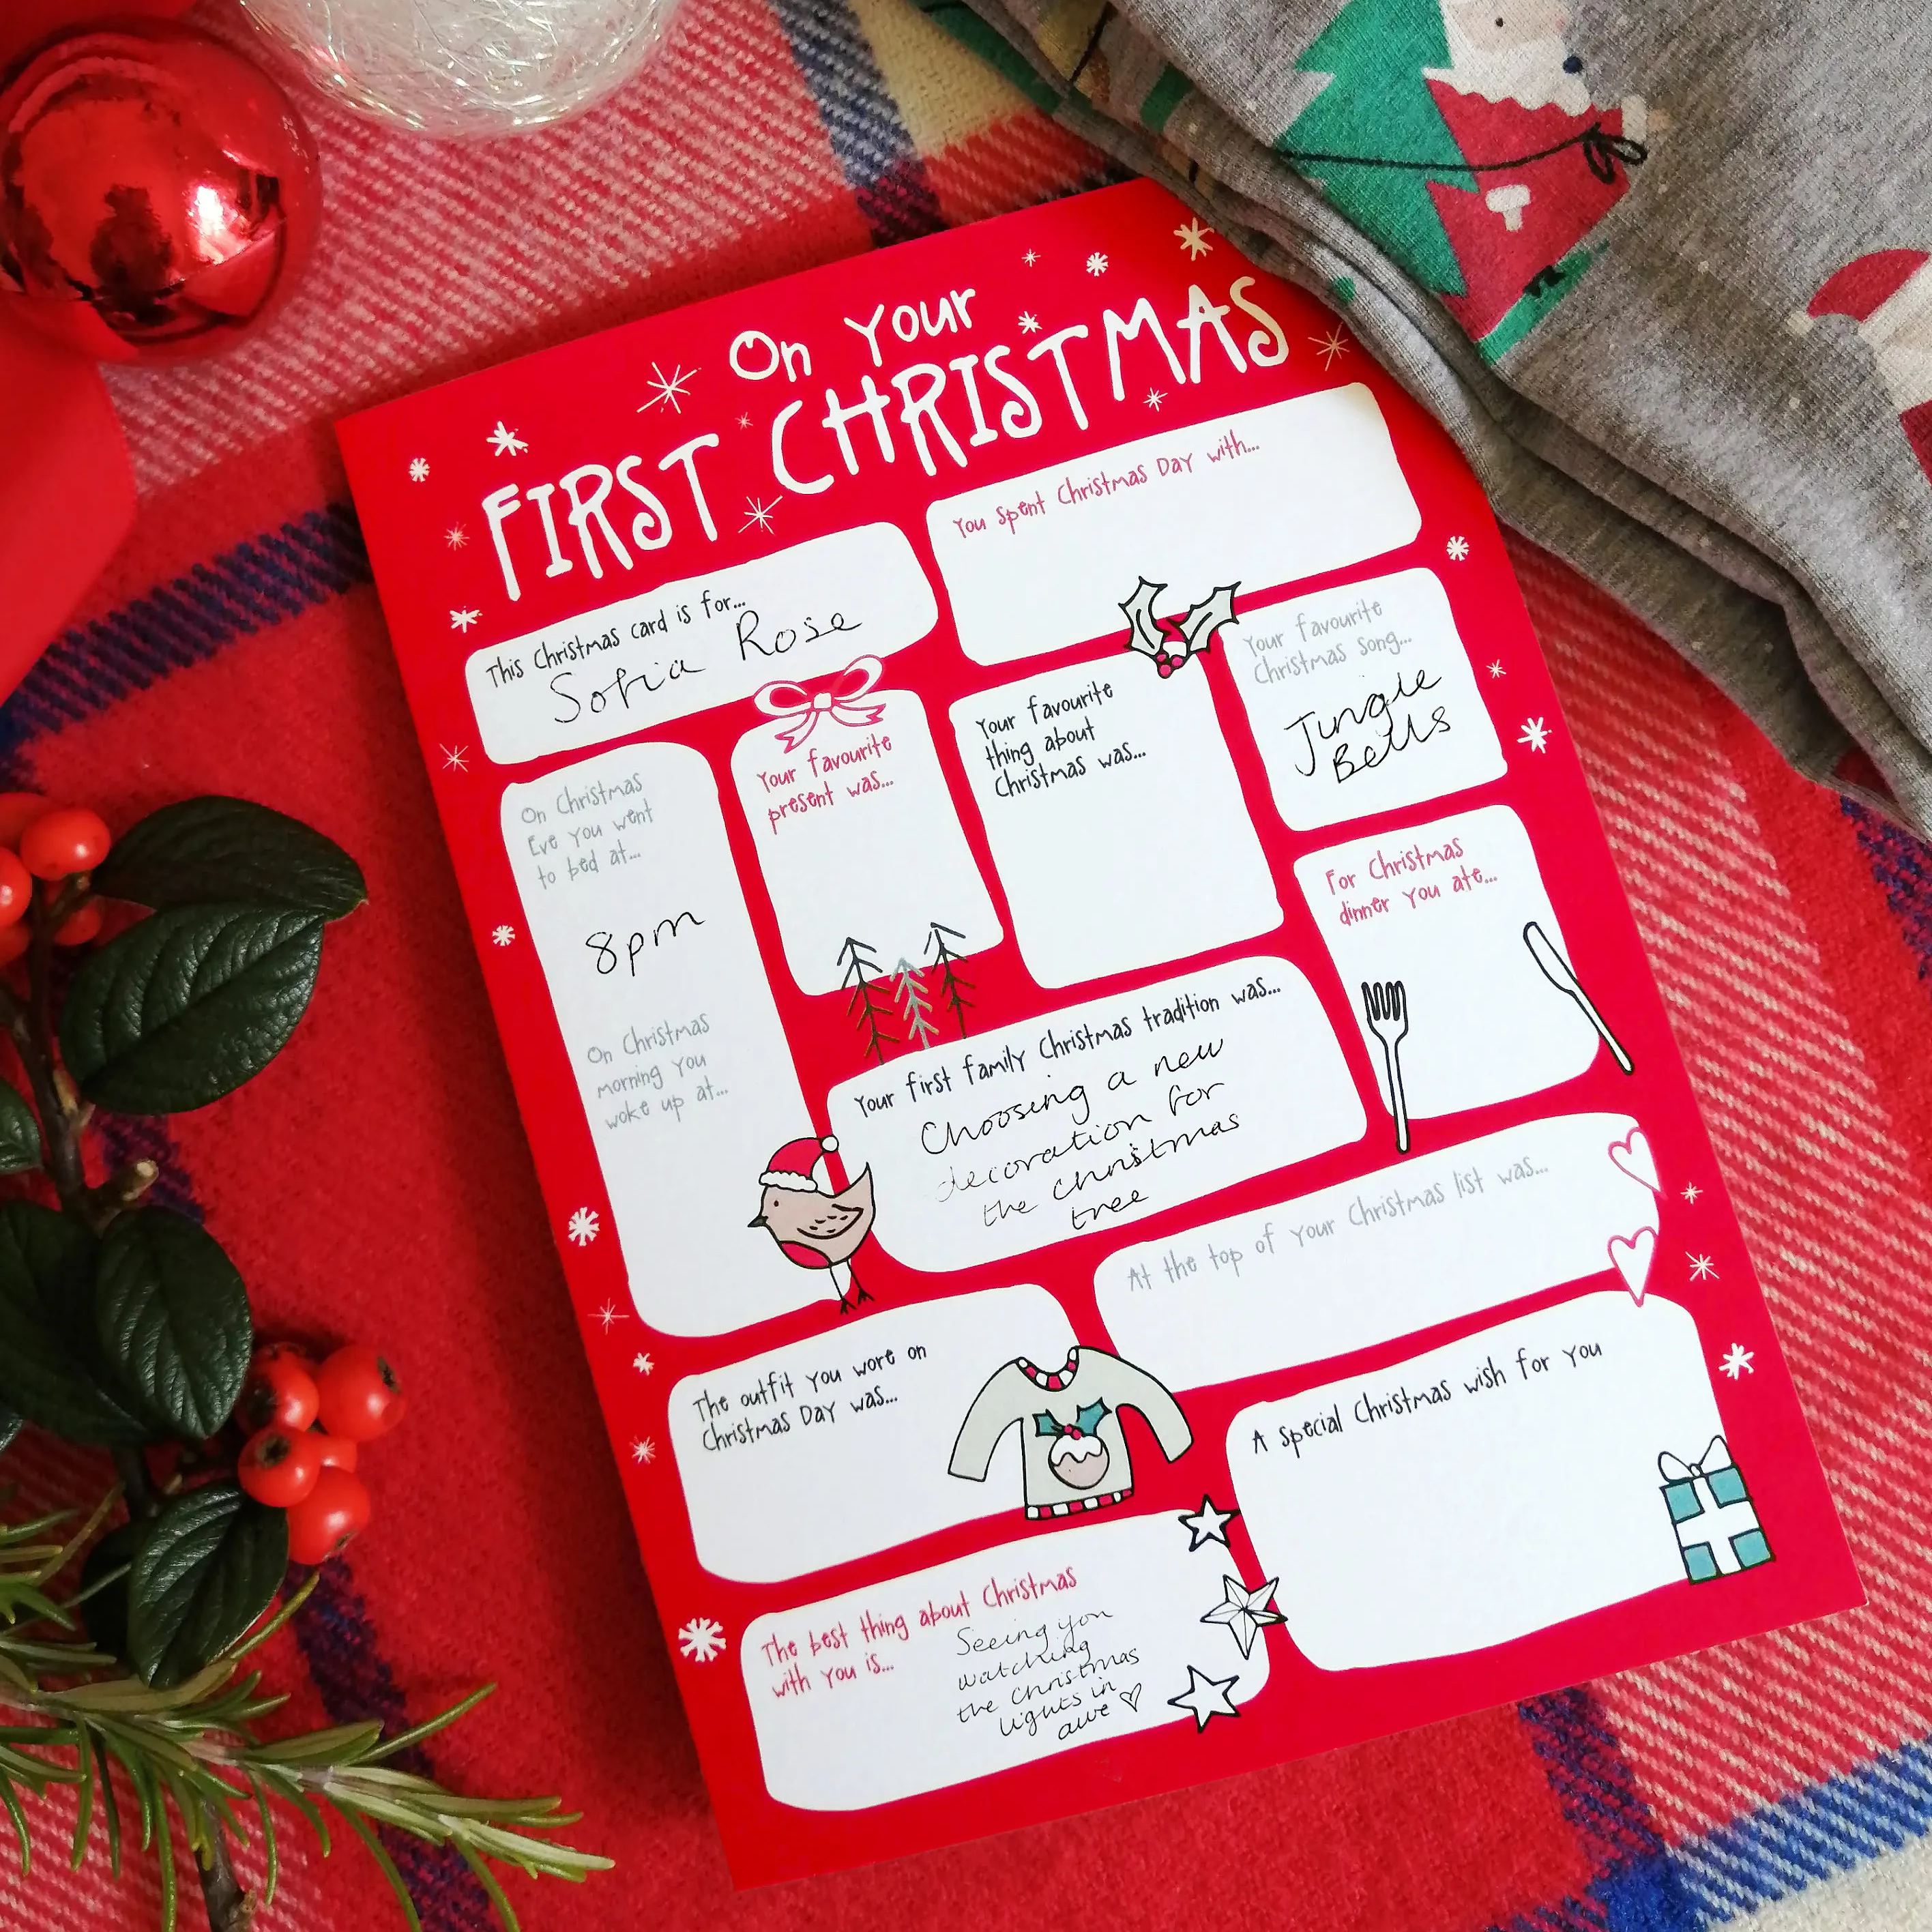 On Your
FIRST CHRISTMAS
This Christmas card is for...
Sofia Rose
You spent Christmas Day with...
On Christmas
Eve you went
to bed at...
8pm
On Christmas
morning you
woke up at...
Your favourite
present was...
Your favourite
thing about
Christmas was...
Your favourite
Christmas song...
Jingle
Bells
For Christmas
dinner you ate...
Your first family Christmas tradition was...
Choosing a new
decoration for
the christmas
tree
At the top of your Christmas list was...
The outfit you wore on
Christmas Day was...
A special Christmas wish for you
The best thing about Christmas
with you is...
Seeing you
watching
the Christmas
lights in
awe